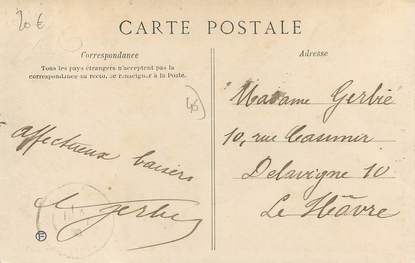 20 €
CARTE POSTALE
Correspondance
Tous les pays étrangers n'acceptent pas la
correspondance au recto, se renseigner à la Poste.
Adresse
45
affectueux baisers
Gerbié
Madame Gerbié
10, rue Casimir
Delavigne 10
Le Hâvre
E